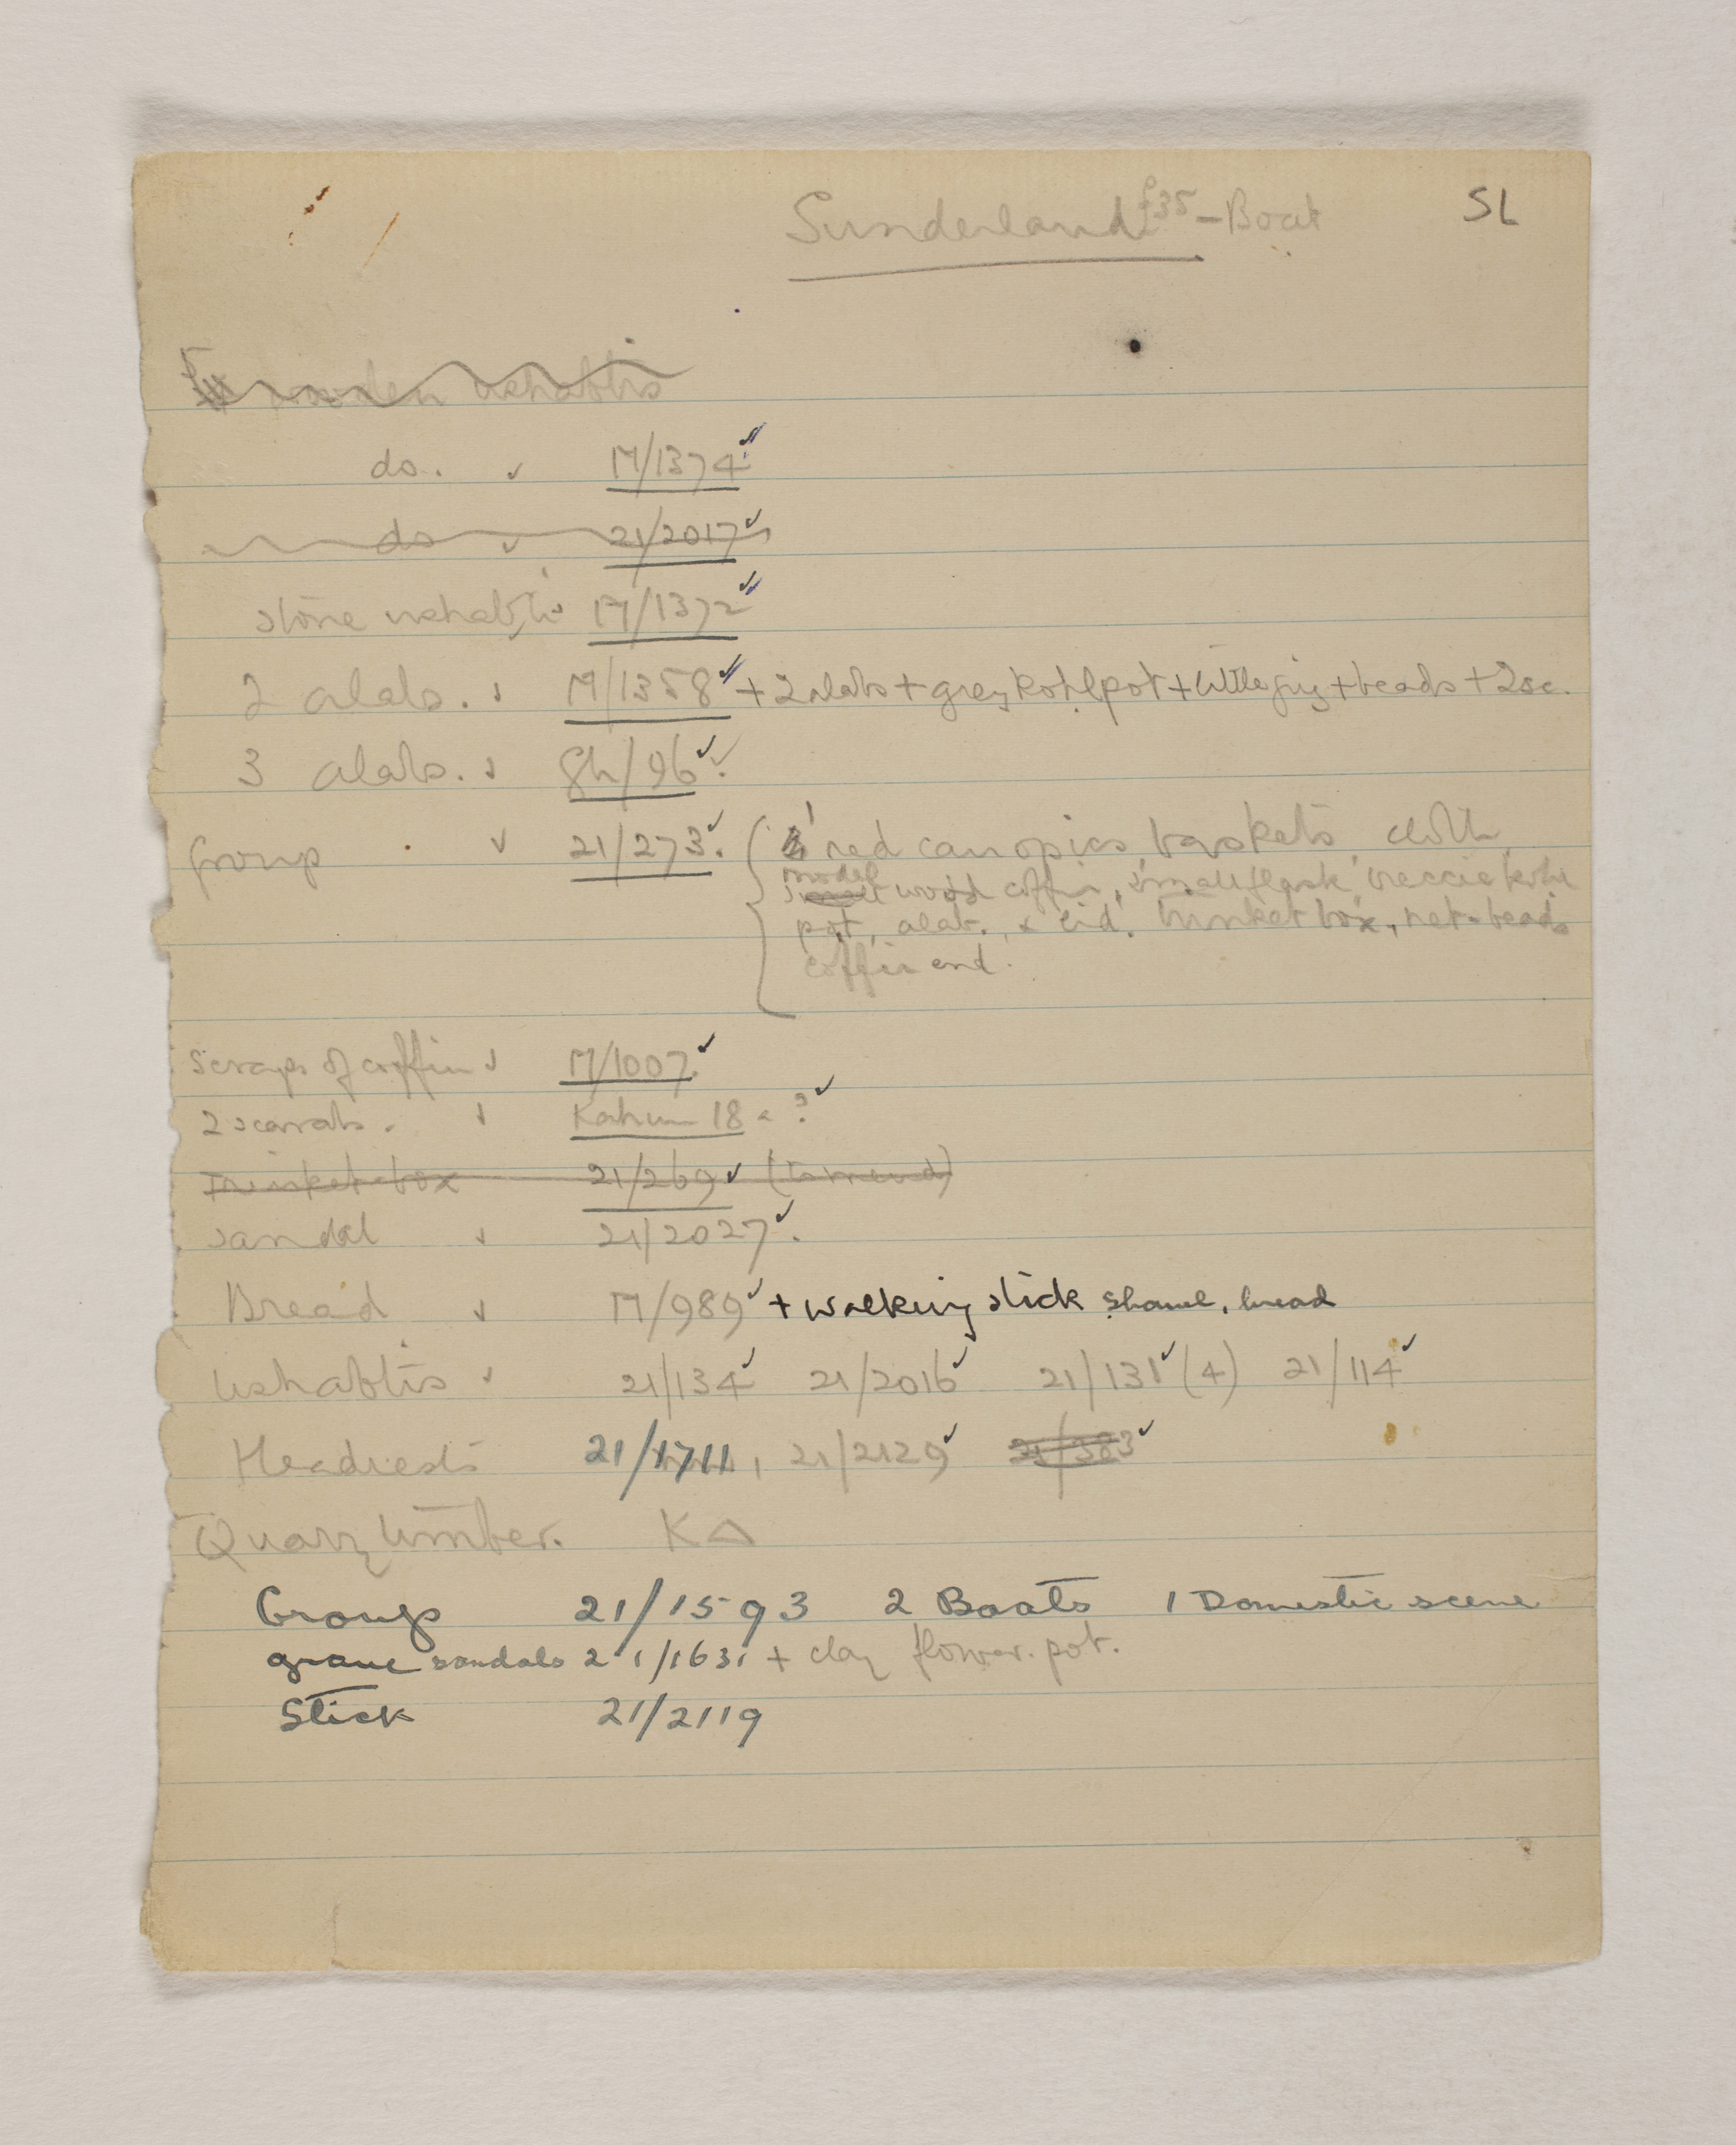 Sunderland £35 - Boat SL
wooden ushabtis
do. ✓ M/1374 ✓
do ✓ 21/2017 ✓
stone ushabti ✓ M/1372 ✓
2 alabs. ✓ M/1358 ✓ + 2 alabs + grey kohlpot + little jug + beads + 2 sc.
3 alabs. ✓ 8h/96 ✓
Group ✓ 21/273. ✓ red canopics, baskets, cloth,
model wood coffin, small flask, breccia kohl
pot, alab. & lid. trinket box, net-beads
coffin end.
scraps of coffin ✓ M/1007. ✓
2 scarabs. ✓ Kahun 18 ? ✓
Trinket-box 21/269 ✓ (to mend)
sandal ✓ 21/2027. ✓
Bread ✓ M/989 ✓ + walking stick shawl, bread
ushabtis ✓ 21/134 ✓ 21/2016 ✓ 21/131 ✓ (4) 21/114 ✓
Headrests 21/1711, 21/2129 ✓ 21/383 ✓
Quarry timber. K△
Group 21/1593 2 Boats 1 Domestic scene
grave sandals 21/1631 + clay flower. pot.
Stick 21/2119